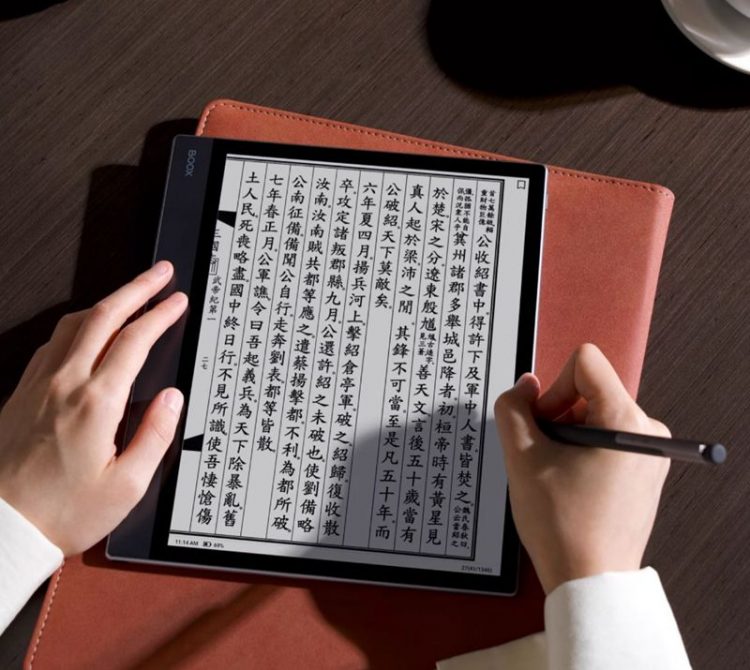 首七萬餘級輜
重財物巨億
公收紹書中得許下及軍中人書皆焚之。
魏氏春秋曰
公云當紹之
彊孤猶不能自
保而況衆人乎
冀州諸郡多舉城邑降者。初桓帝時有黃星見
於楚宋之分遼東殷馗
馗古逵字
見三蒼
善天文言後五十歲當有
真人起於梁沛之閒其鋒不可當至是凡五十年而
公破紹天下莫敵矣。
六年夏四月揚兵河上擊紹倉亭軍破之紹歸復收散
卒攻定諸叛郡縣九月公還許紹之未破也使劉備略
汝南汝南賊共都等應之遣蔡揚擊都不利為都所破
公南征備備聞公自行走奔劉表都等皆散。
七年春正月公軍譙令曰吾起義兵為天下除暴亂舊
土人民死喪略盡國中終日行不見所識使吾悽愴傷
三國
武帝紀第一
二七
BOOX
11:14 AM 69%